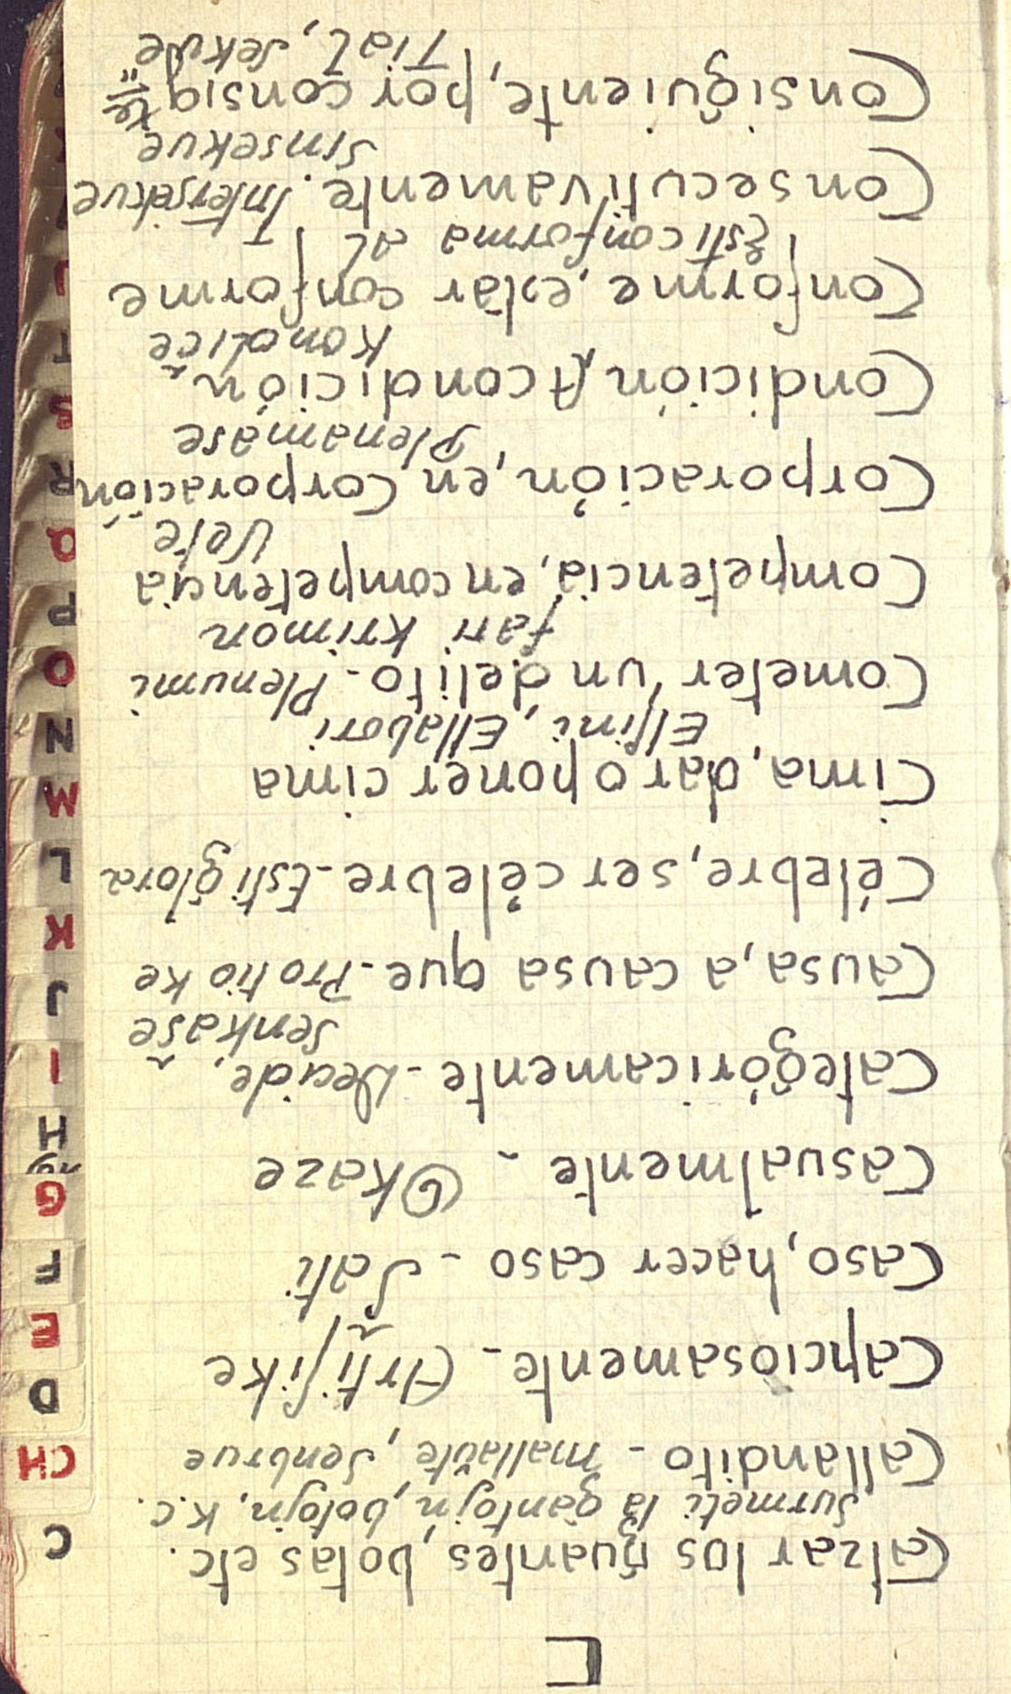 C
Calzar los guantes, botas etc.
Surmeti la gantojn, botojn, k.c.
Callandito - mallaŭte, senbrue
Capciosamente - Artifike
Caso, hacer caso - Ŝati
Casualmente - Okaze
Categóricamente - Decide,
Senkaŝe
Causa, a causa que - Protio ke
Célebre, ser célebre - Esti glora
Cima, dar o poner cima
Elfini, Ellabori
Cometer un delito - Plenumi
fari krimon
Competencia, en competencia
Vete
Corporación, en Corporación
Plenamase
Condición, A condición
Kondiĉe
Conforme, estar conforme
Esti conforma al
Consecutivamente. Intersekve
Sinsekve
Consiguiente, por consigte
Tial, sekve
C
CH
D
E
F
G
H
I
J
K
L
M
N
O
P
Q
R
S
T
U